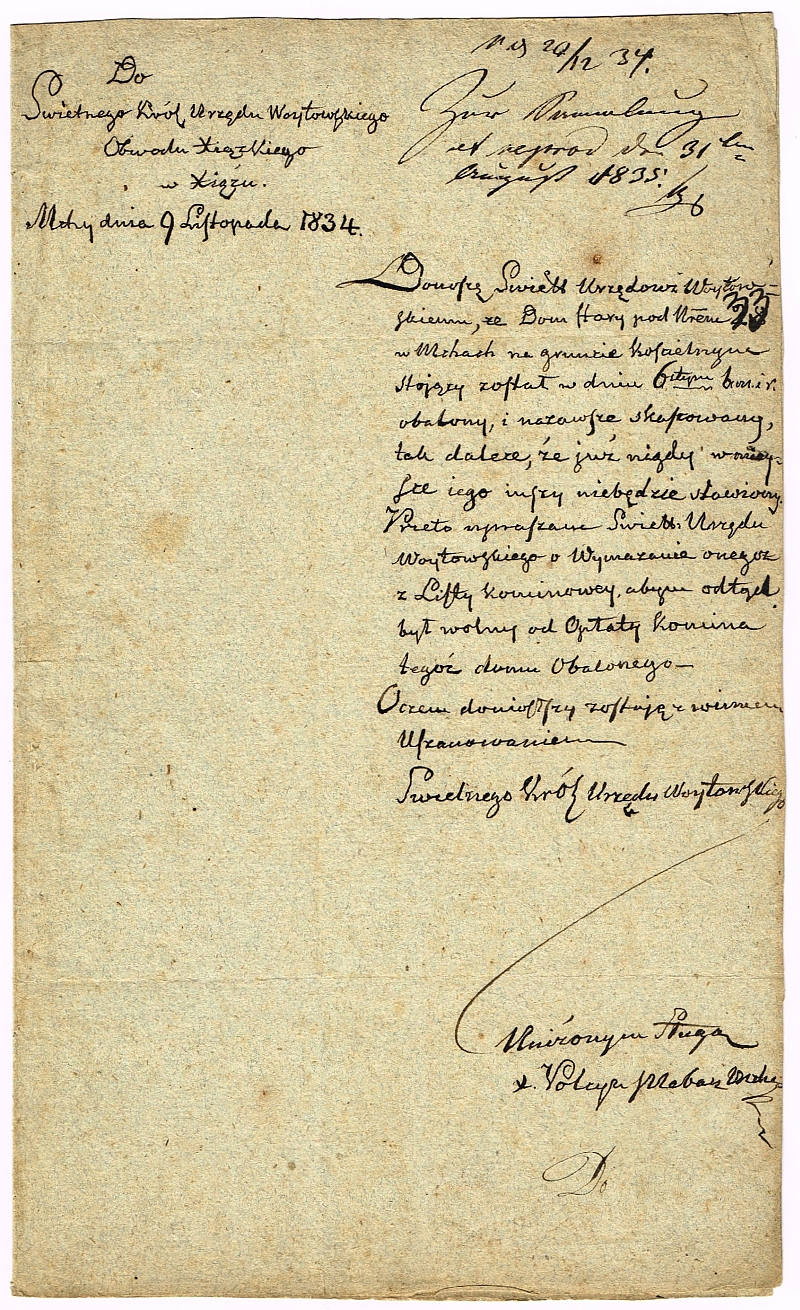 Do
Swietnego Król Urzędu Woytowskiego
Obwodu Xiązkiego
w Xiązu.
Mchy dnia 9 Listopada 1834.
20/12 34.
Zur Sammlung
et reprod den 31ten
August 1835.
Donoszę Swiett Urzędowi Woytow-
skiemu, ze Dom stary pod Nrem 33
w Mchach na gruncie kościelnym
stojący został w dniu 6stym b. m. i r.
obalony, i nazawsze skasowany,
tak dalece, że już nigdy w miey-
sce iego inszy niebędzie stawiony.
Przeto upraszam Swiett: Urzędu
Woytowskiego o Wymazanie onegoz
z Listy kominowey, abym odtąd
był wolny od Opłaty komina
tegoż domu Obalonego—
Oczem donioszszy zostaję z winnem
Uszanowaniem
Swietnego Król Urzędu Woytowskiego
Uniżonym Sługą
X.
Do